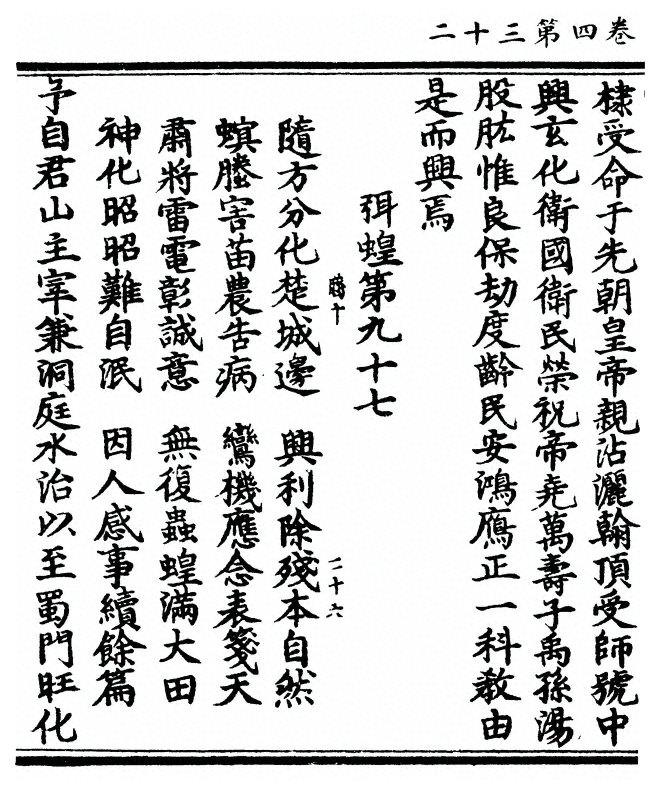 卷四第三十二
棣受命于先朝皇帝親沾灑翰頂受師號中
興玄化衛國衛民榮祝帝堯萬壽子禹孫湯
股肱惟良保劫度齡民安鴻鴈正一科敎由
是而興焉
弭蝗第九十七
勝十
二十六
隨方分化楚城邊　興利除殘本自然
螟螣害苗農告病　鸞機應念表箋天
肅將雷電彰誠意　無復蟲蝗滿大田
神化昭昭難自泯　因人感事續餘篇
予自君山主宰兼洞庭水治以至蜀門旺化